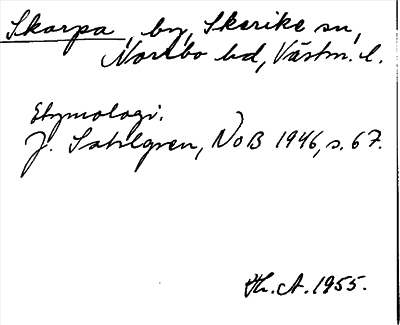 Skarpa, by, Skerike sn,
Norrbo hd, Västm. l.
Etymologi.
J. Sahlgren, NoB 1946, s. 67.
Th. A. 1955.